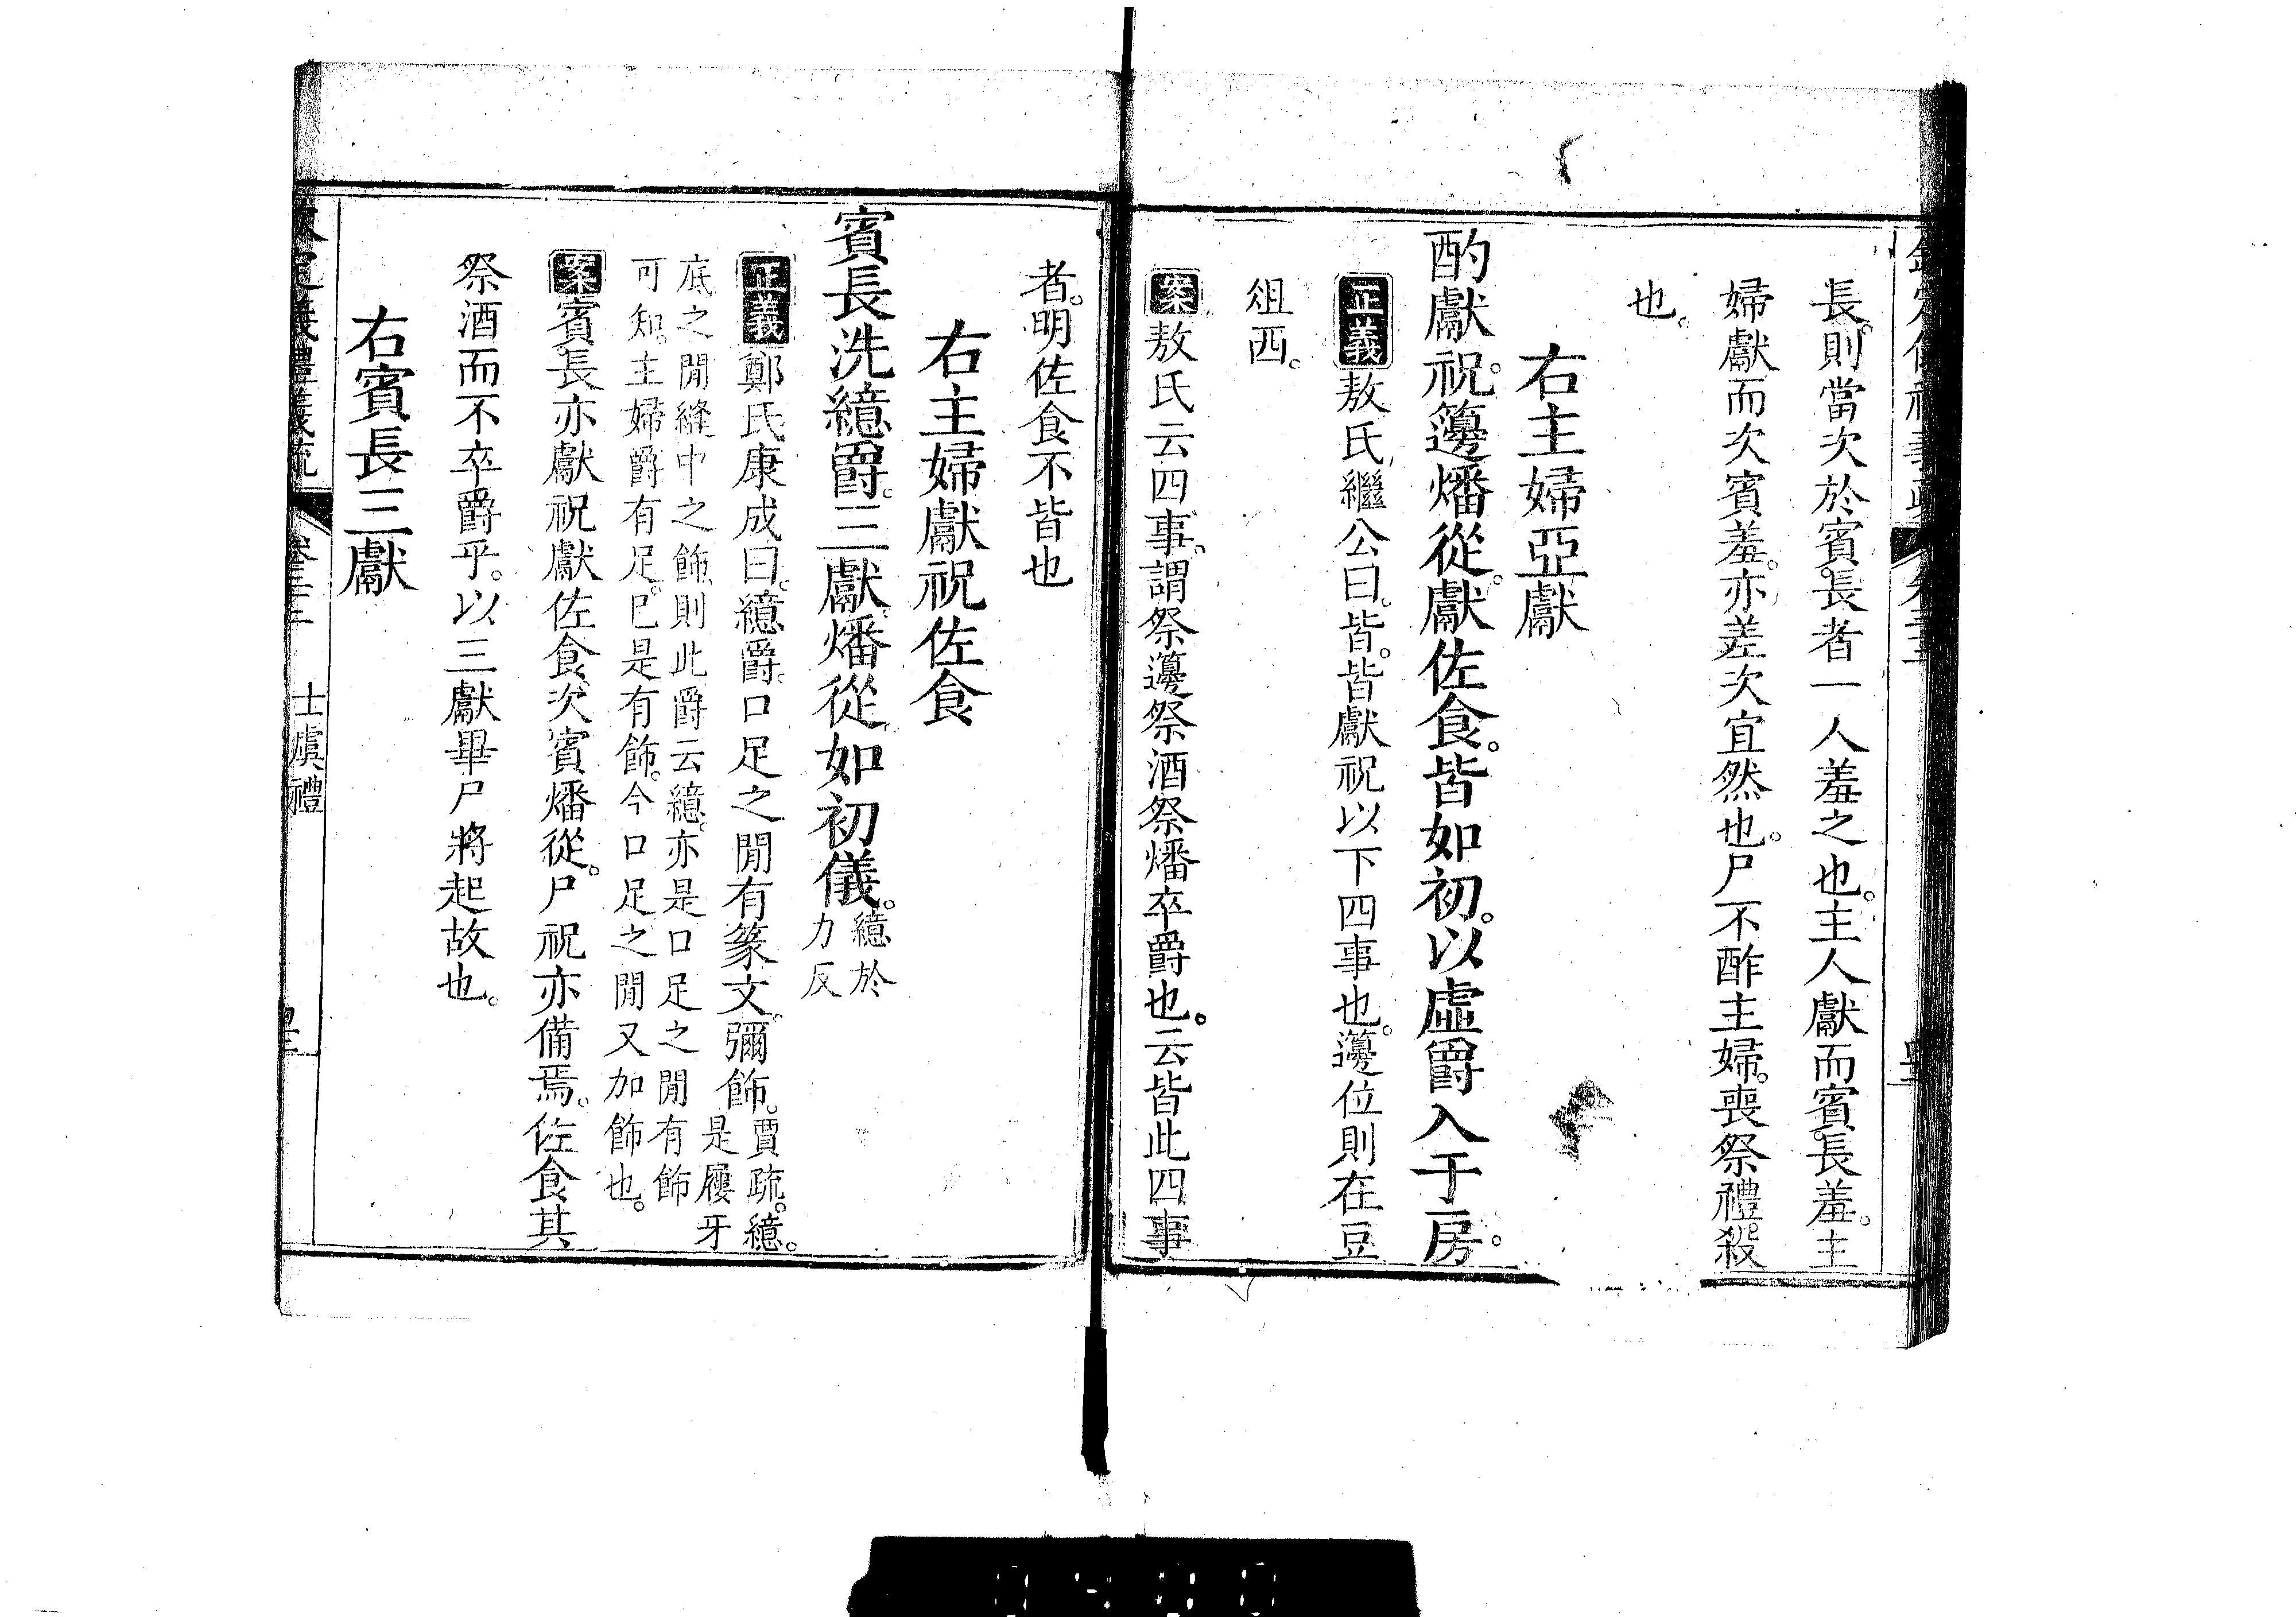 長則當次於賓長者一人羞之也。主人獻而賓長羞。主
婦獻而次賓羞。亦差次宜然也。尸不酢主婦。喪祭禮殺
也。
右主婦亞獻
酌獻祝。籩燔從。獻佐食。皆如初。以虛爵入于房。
正義敖氏繼公曰。皆。皆獻祝以下四事也。籩位則在豆
俎西。
案敖氏云四事。謂祭籩祭酒祭燔卒爵也。云皆此四事
者。明佐食不皆也
右主婦獻祝佐食
賓長洗繶爵。三獻。燔從。如初儀。繶於
力反
正義鄭氏康成曰。繶爵。口足之閒有篆文。彌飾。賈疏。繶。
是屨牙
底之閒縫中之飾。則此爵云繶。亦是口足之閒有飾
可知。主婦爵有足。已是有飾。今口足之閒又加飾也。
案賓長亦獻祝獻佐食。次賓燔從。尸祝亦備焉。佐食其
祭酒而不卒爵乎。以三獻畢尸將起故也。
右賓長三獻
欽定儀禮義疏 卷三十三 士虞禮